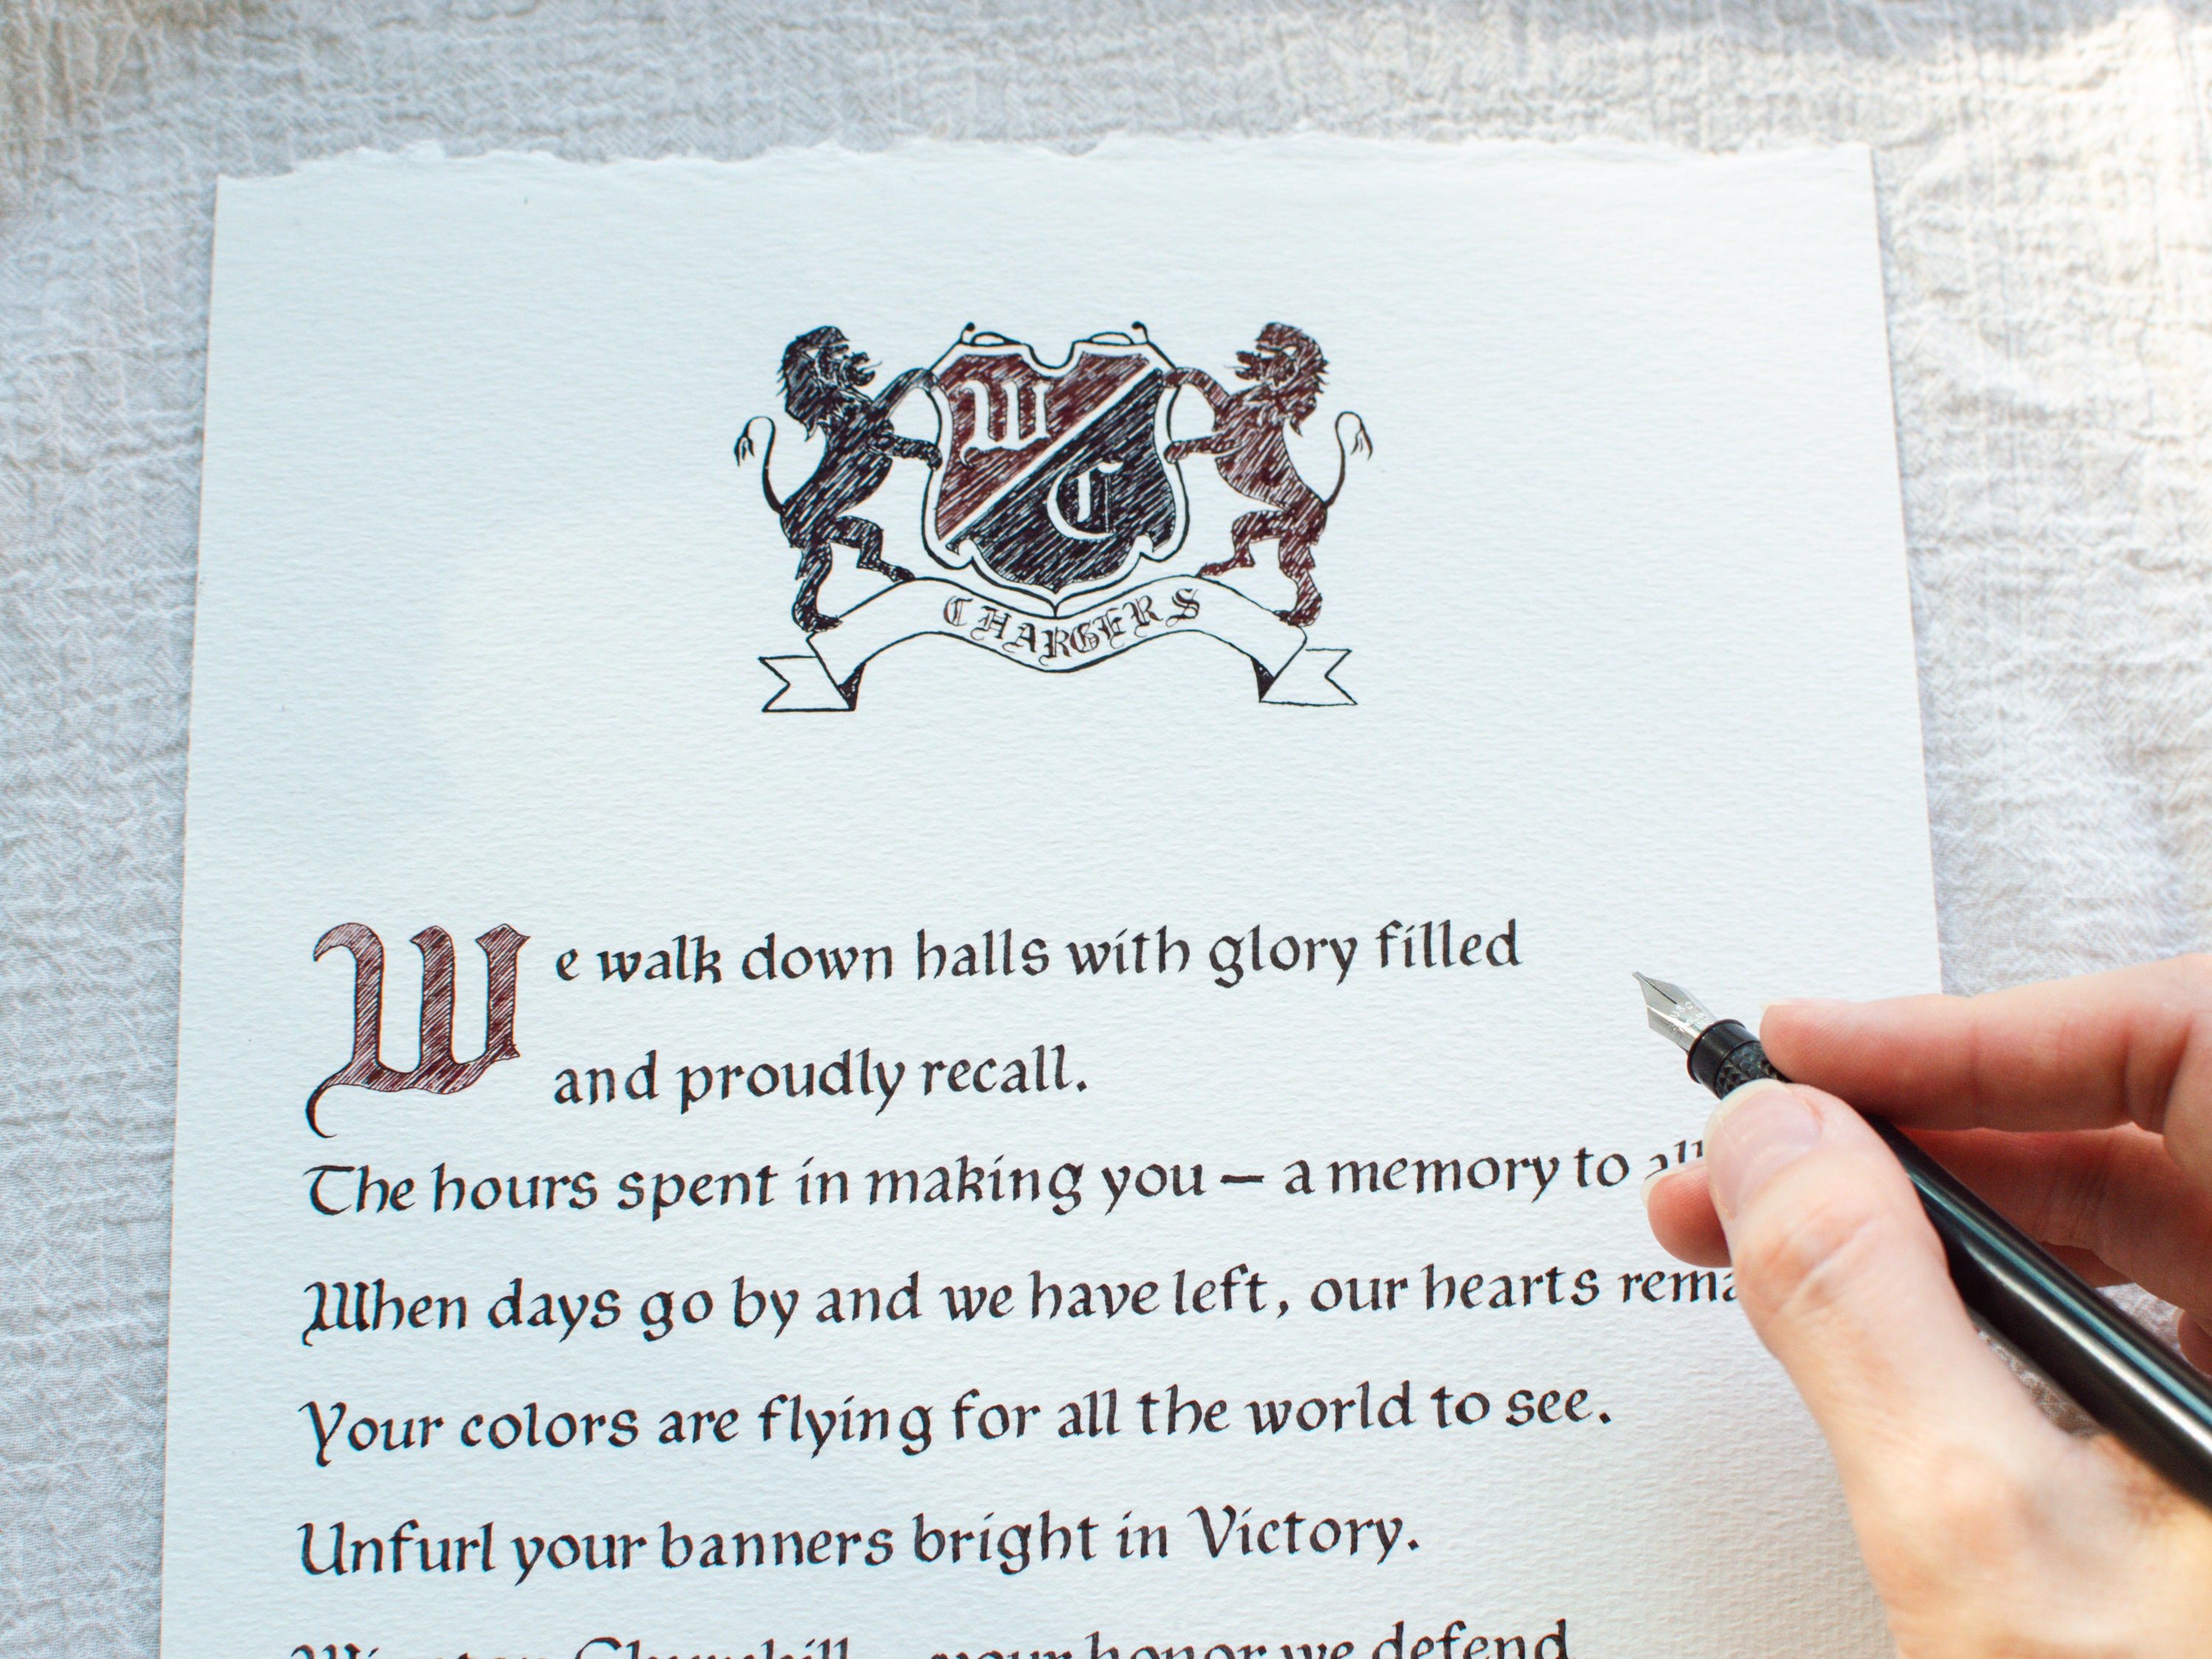 W
C
CHARGERS
We walk down halls with glory filled
and proudly recall.
The hours spent in making you – a memory to all
When days go by and we have left, our hearts rema
Your colors are flying for all the world to see.
Unfurl your banners bright in Victory.
Winston Churchill – your honor we defend